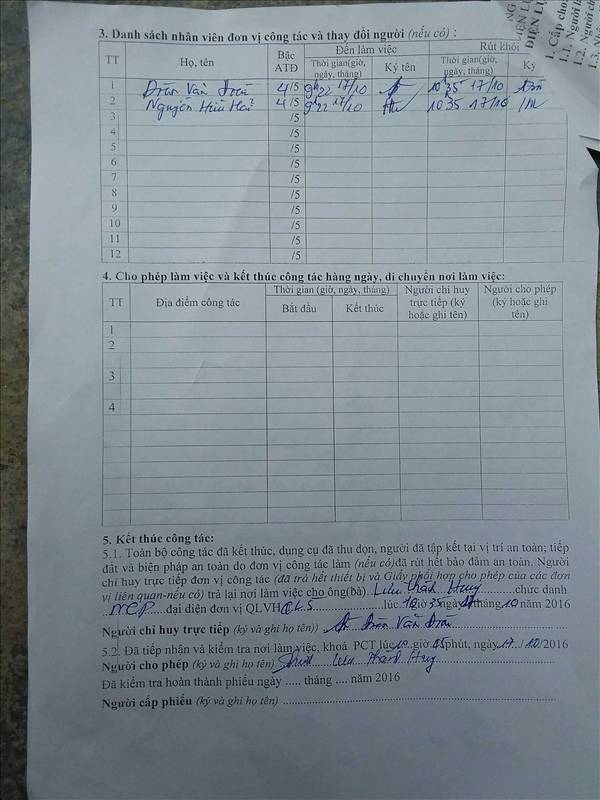 3. Danh sách nhân viên đơn vị công tác và thay đổi người (nếu có) :
TT Họ, tên Bậc ATĐ Đến làm việc Rút khỏi
Thời gian(giờ, ngày, tháng) Ký tên Thời gian(giờ, ngày, tháng) Ký
1 Văn 4/5 9h22 17/10 10h35 17/10
2 Nguyễn Hữu 4/5 9h22 17/10 10h35 17/10
3 /5
4 /5
5 /5
6 /5
7 /5
8 /5
9 /5
10 /5
11 /5
12 /5
4. Cho phép làm việc và kết thúc công tác hàng ngày, di chuyển nơi làm việc:
TT Địa điểm công tác Thời gian (giờ, ngày, tháng) Người chỉ huy trực tiếp (ký hoặc ghi tên) Người cho phép (ký hoặc ghi tên)
Bắt đầu Kết thúc
1
2
3
4
5. Kết thúc công tác:
5.1. Toàn bộ công tác đã kết thúc, dụng cụ đã thu dọn, người đã tập kết tại vị trí an toàn; tiếp
đất và biện pháp an toàn do đơn vị công tác làm (nếu có)đã rút hết bảo đảm an toàn. Người
chỉ huy trực tiếp đơn vị công tác (đã trả hết thiết bị và Giấy phối hợp cho phép của các đơn
vị liên quan-nếu có) trả lại nơi làm việc cho ông(bà) Lưu Thành Huy chức danh
NCP đại diện đơn vị QLVH lúc 10 giờ 35 ngày 17 tháng 10 năm 2016
Người chỉ huy trực tiếp (ký và ghi họ tên)) Văn
5.2. Đã tiếp nhận và kiểm tra nơi làm việc, khoá PCT lúc 10 giờ phút, ngày 17 / 10/2016
Người cho phép (ký và ghi họ tên) Lưu Thành Huy
Đã kiểm tra hoàn thành phiếu ngày ..... tháng .... năm 2016
Người cấp phiếu (ký và ghi họ tên)
1. Cấp cho
1.1. Người
1.2. Người